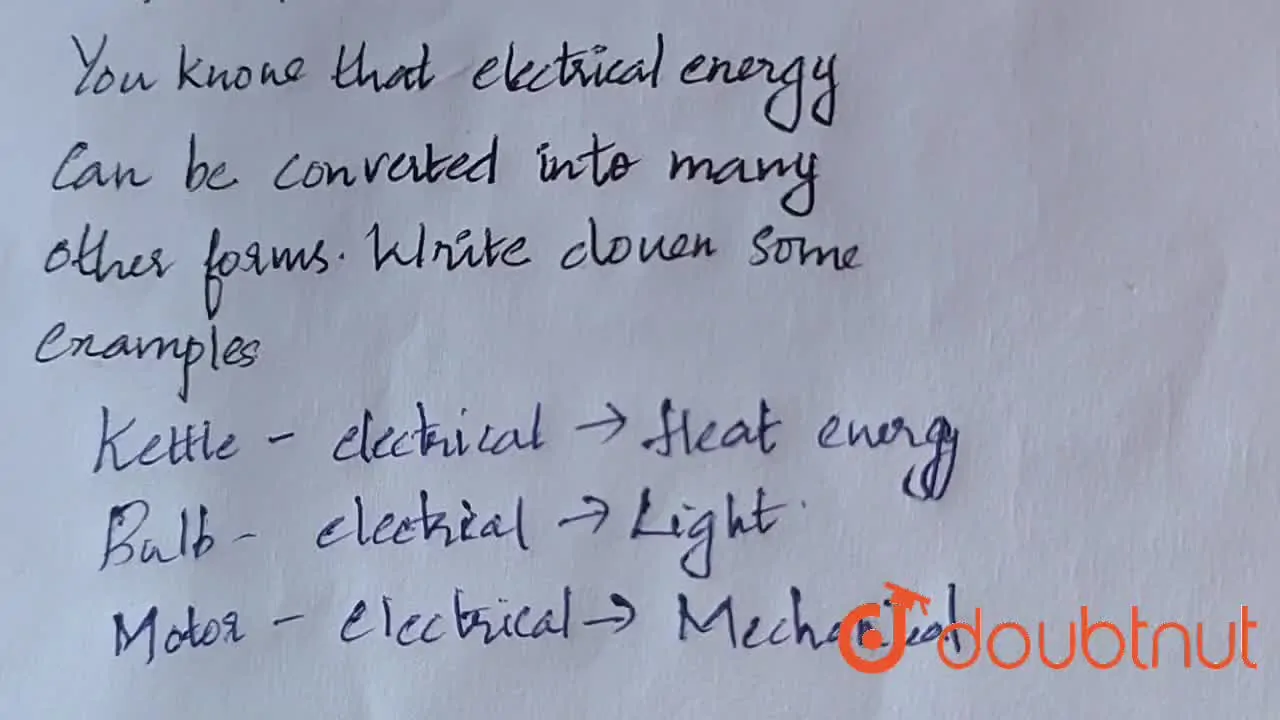 You know that electrical energy
Can be converted into many
other forms. Write down some
examples
Kettle - electrical → Heat energy
Bulb - electrical → Light
Motor - electrical → Mechanical
doubtnut